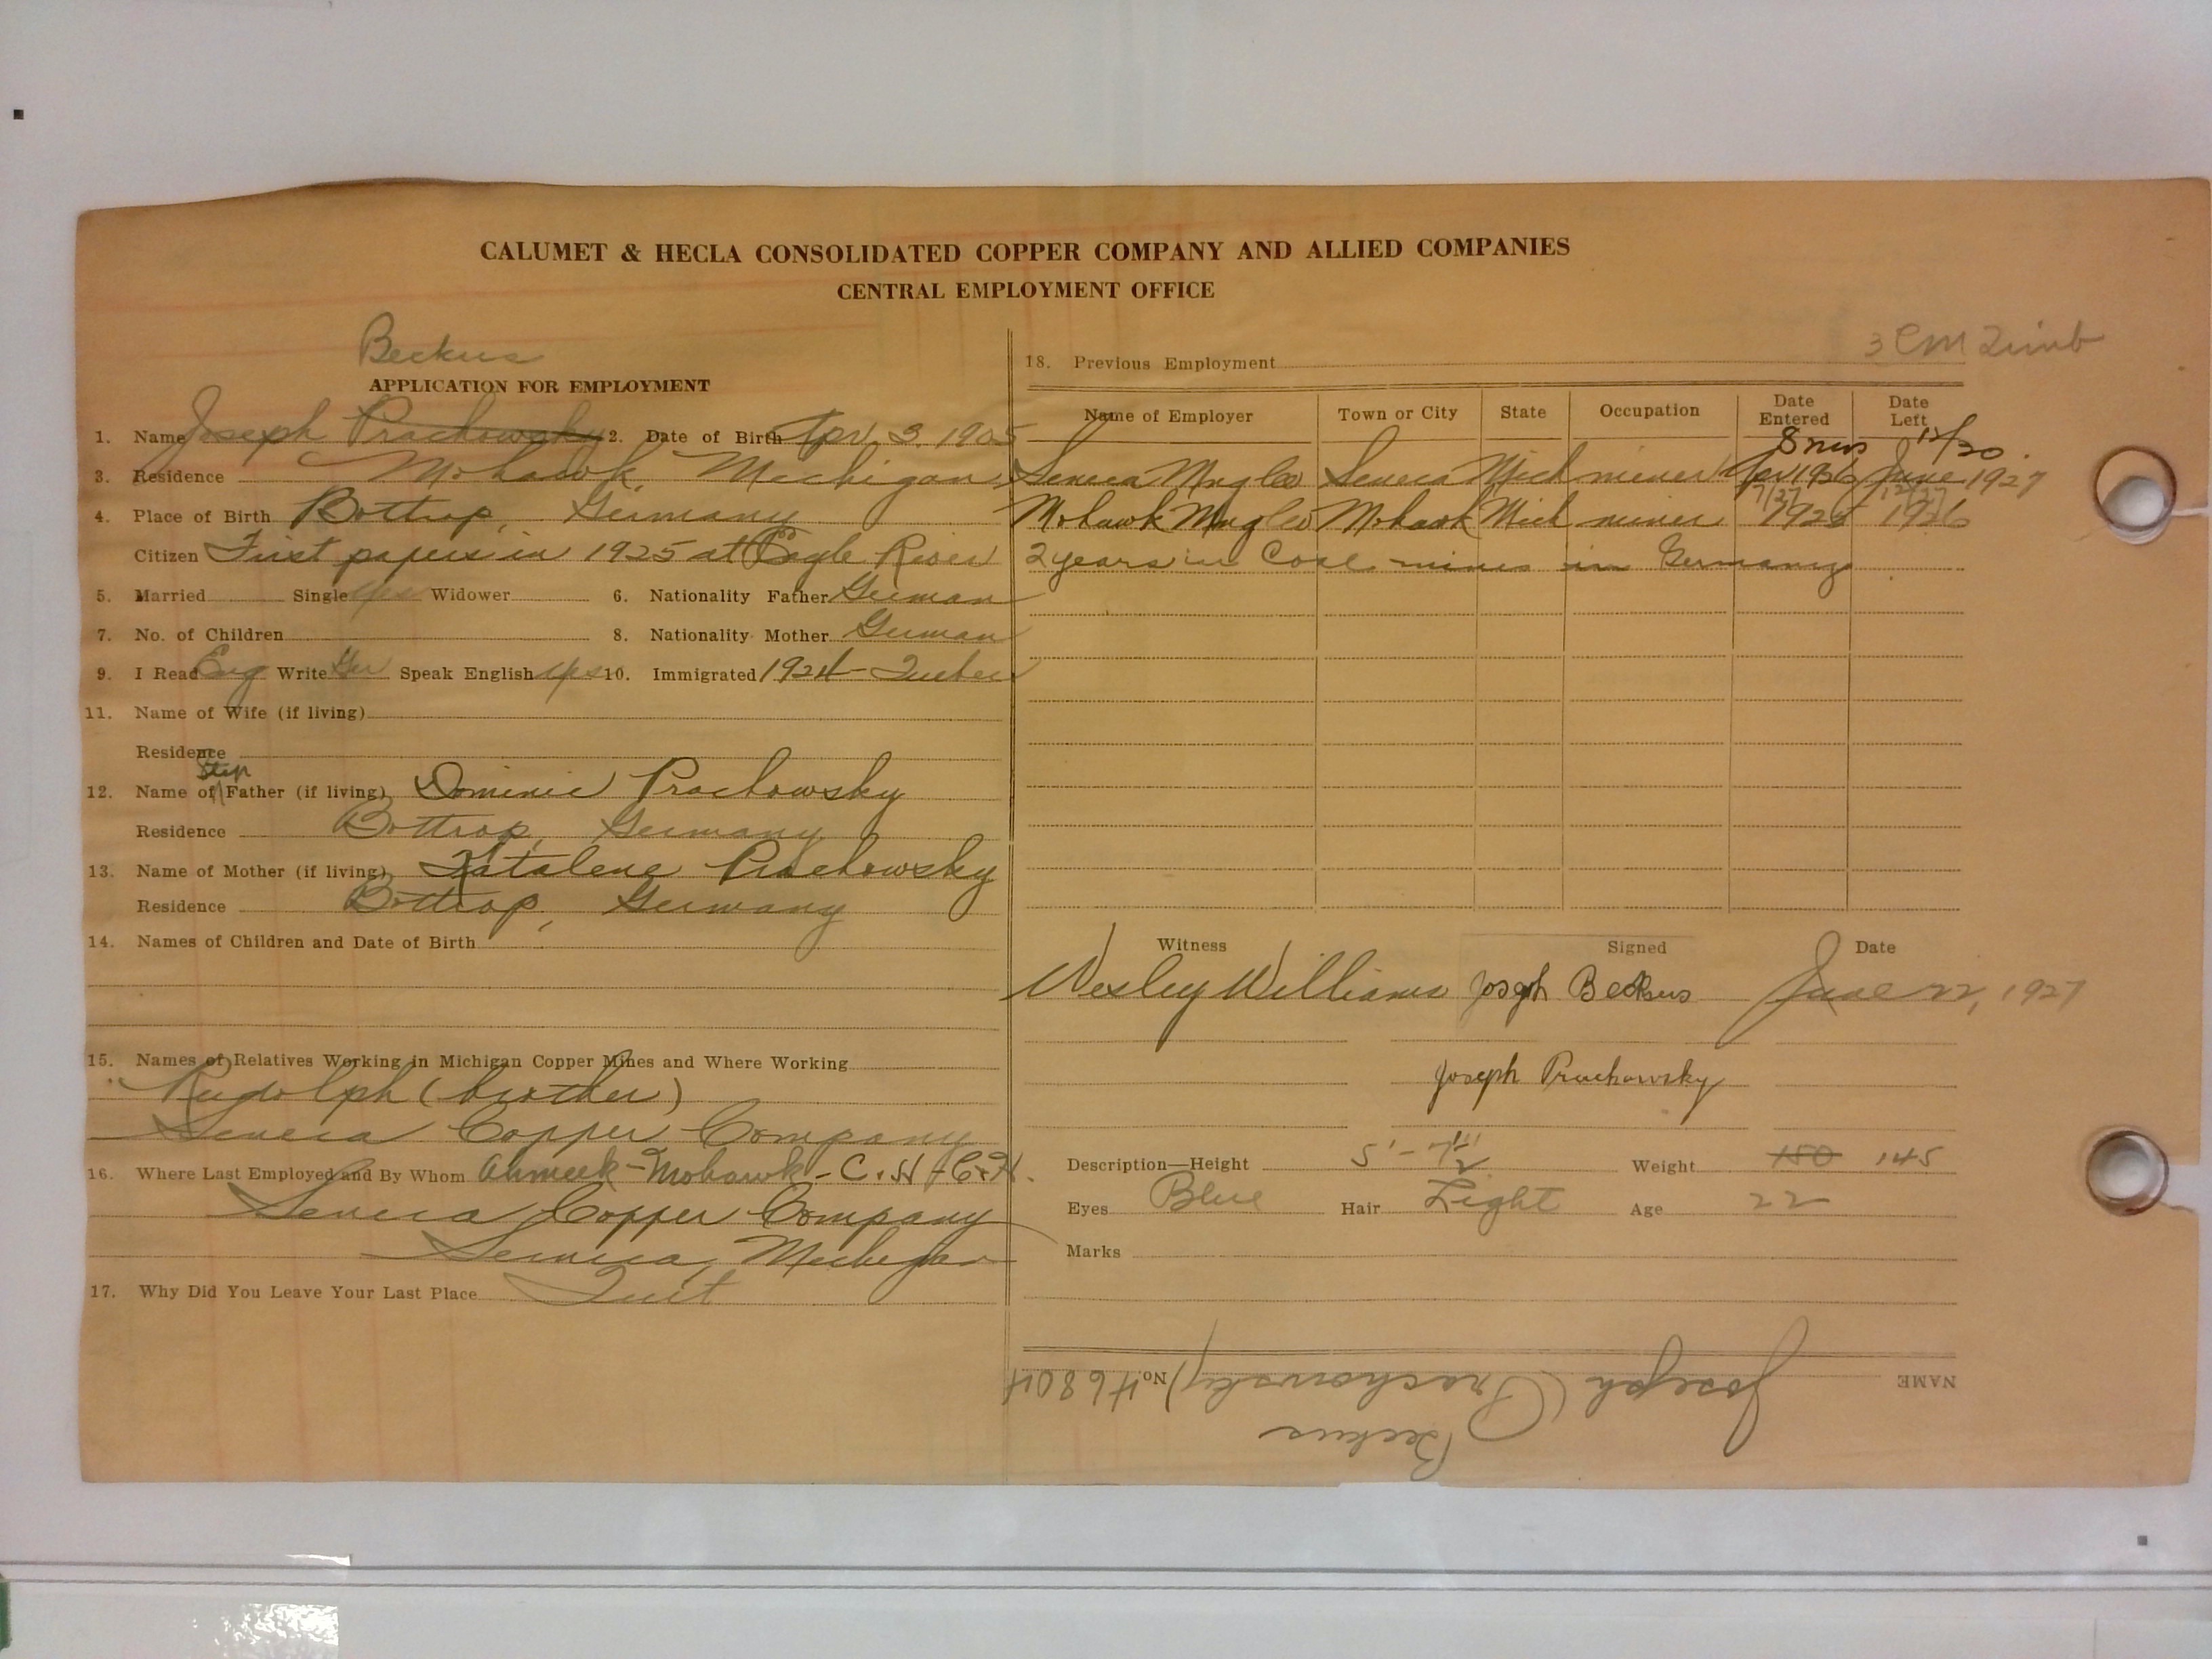 CALUMET & HECLA CONSOLIDATED COPPER COMPANY AND ALLIED COMPANIES
CENTRAL EMPLOYMENT OFFICE
Beckus
APPLICATION FOR EMPLOYMENT
1. Name Joseph Prachowsky 2. Date of Birth Apr. 3. 1905
3. Residence Mohawk, Michigan
4. Place of Birth Bottrop, Germany
Citizen First papers in 1925 at Eagle River
5. Married Single yes Widower 6. Nationality Father German
7. No. of Children 8. Nationality Mother German
9. I Read Eng Write Ger Speak English yes 10. Immigrated 1924 - Quebec
11. Name of Wife (if living)
Residence
Step
12. Name of Father (if living) Dominic Prachowsky
Residence Bottrop, Germany
13. Name of Mother (if living) Katalene Prachowsky
Residence Bottrop, Germany
14. Names of Children and Date of Birth
15. Names of Relatives Working in Michigan Copper Mines and Where Working
Rudolph (brother)
Seneca Copper Company
16. Where Last Employed and By Whom Ahmeek - Mohawk - C. & H.
Seneca Copper Company
Seneca, Michigan
17. Why Did You Leave Your Last Place Quit
3 CM Timb
18. Previous Employment
Name of Employer Town or City State Occupation Date Entered Date Left
8 mos 12/30.
Seneca Mng Co Seneca Mich miner Apr 1926 June 1927
7/27 12/27
Mohawk Mng Co Mohawk Mich miner 1925 1926
2 years in Coal mines in Germany
Witness Signed Date
Wesley Williams Joseph Beckus June 22, 1927
Joseph Prachowsky
Description—Height 5' - 7 1/2" Weight 150 145
Eyes Blue Hair Light Age 22
Marks
NAME Joseph (Prachowsky) No. 46804
Beckus